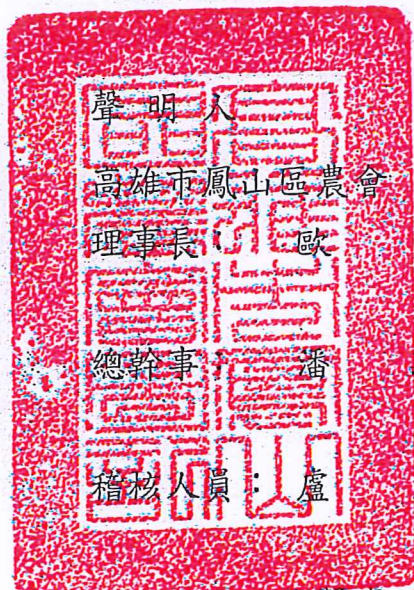 聲明人
高雄市鳳山區農會
理事長： 歐
總幹事： 潘
稽核人員： 盧